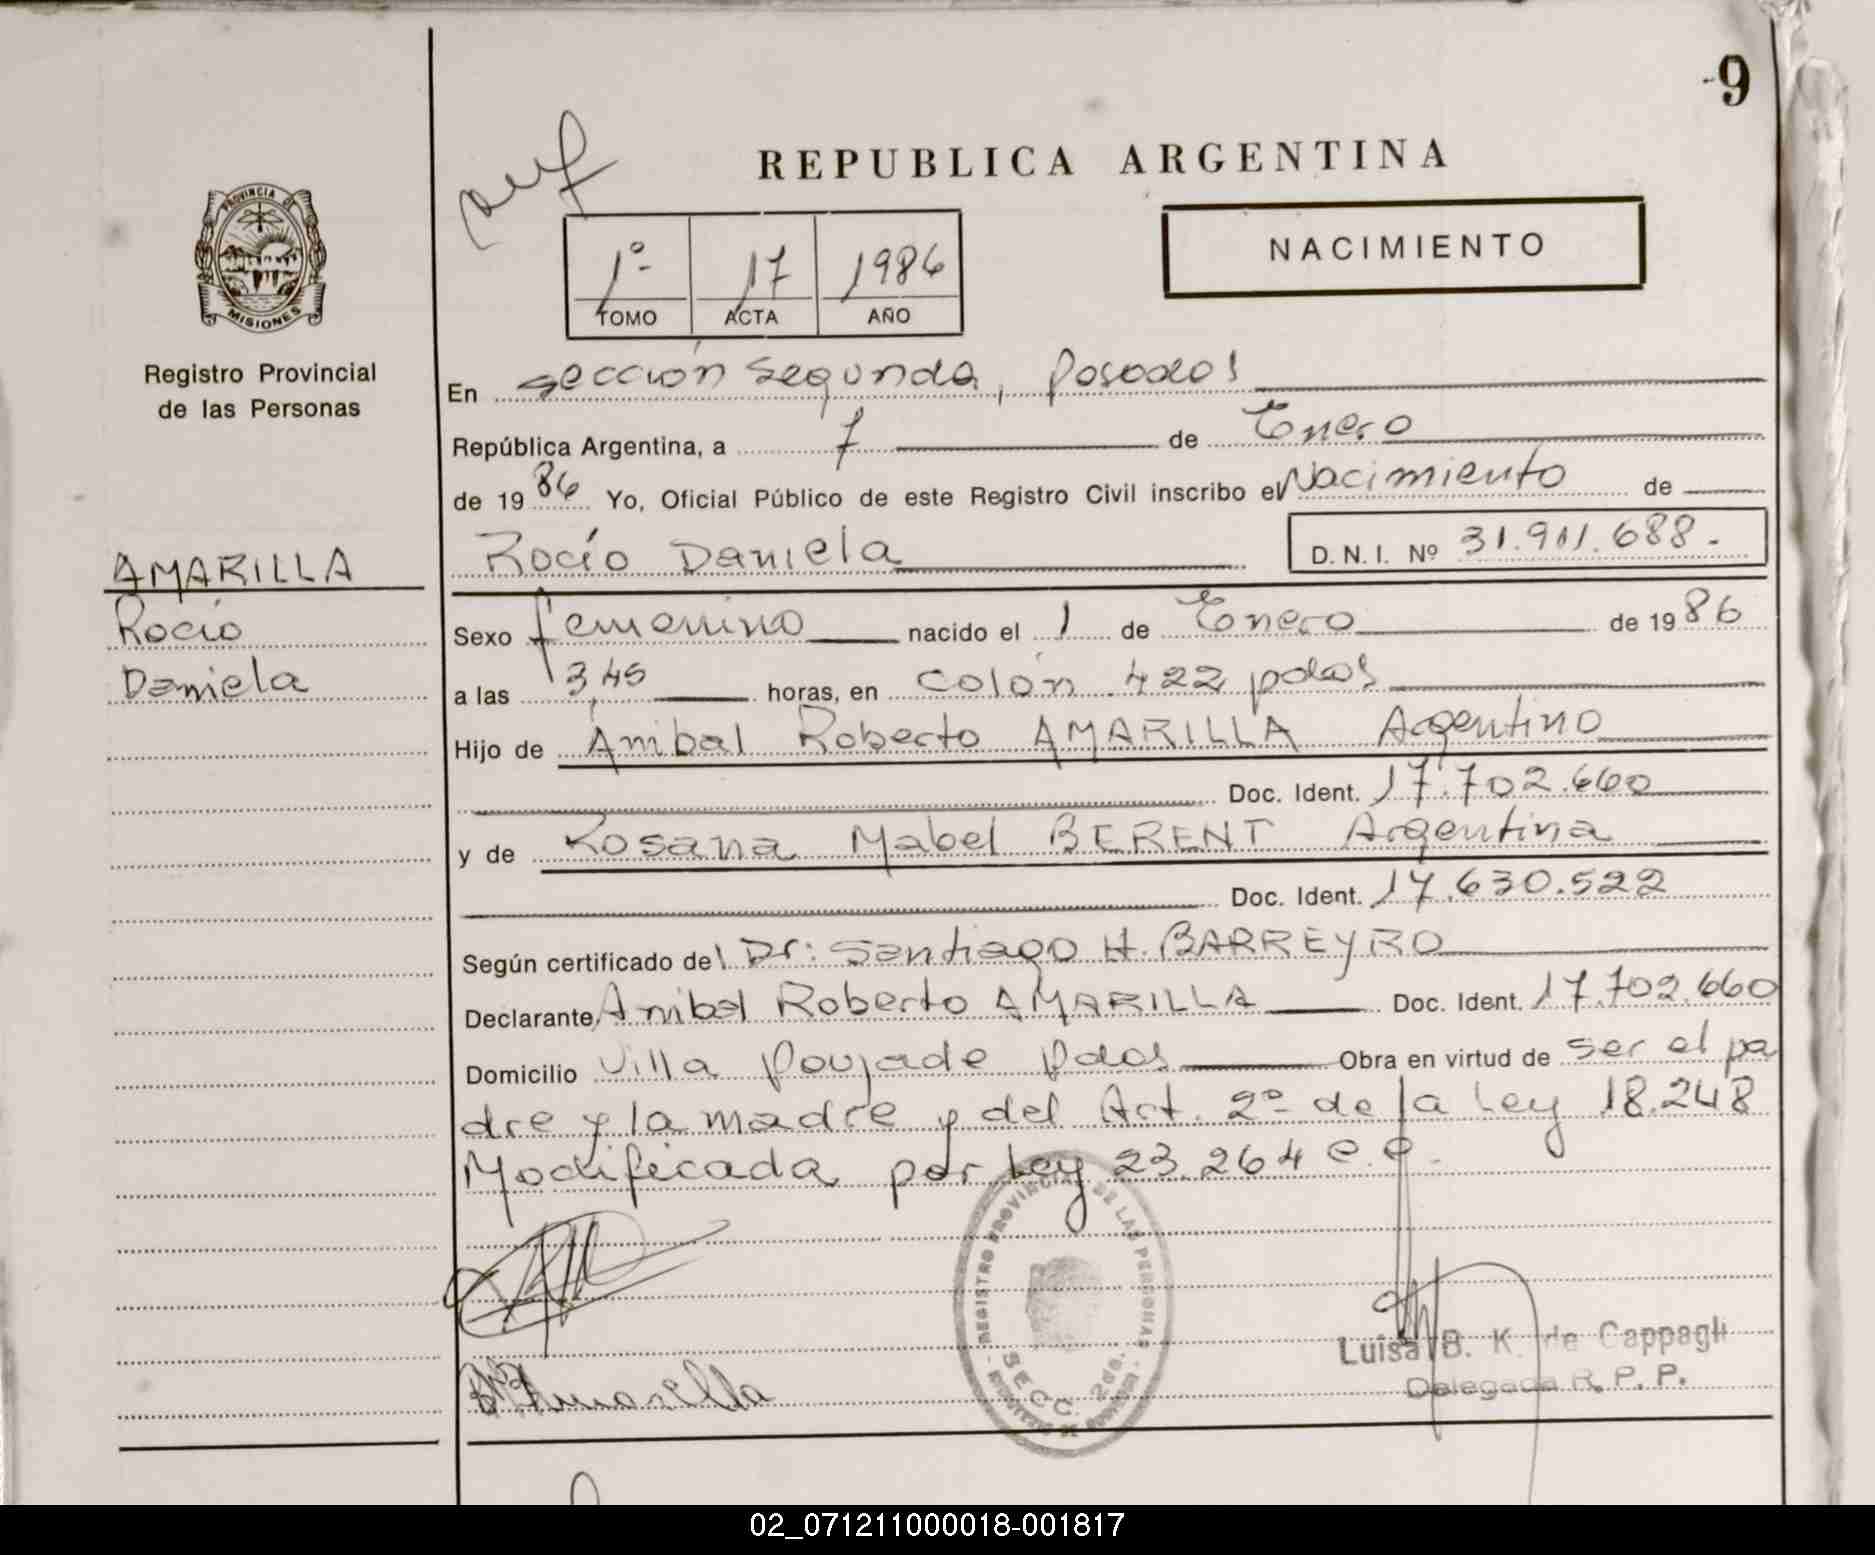 9
REPUBLICA ARGENTINA
PROVINCIA DE
MISIONES
Registro Provincial
de las Personas
1º 17 1986
TOMO ACTA AÑO
NACIMIENTO
En sección segunda, Posadas
República Argentina, a 7 de Enero
de 19 86 Yo, Oficial Público de este Registro Civil inscribo el Nacimiento de
AMARILLA
Rocio
Daniela
Rocío Daniela D.N.I. Nº 31.911.688.-
Sexo femenino nacido el 1 de Enero de 19 86
a las 3,45 horas, en colón 422 pdas
Hijo de Anibal Roberto AMARILLA Argentino
Doc. Ident. 17.702.660
y de Rosana Mabel BERENT Argentina
Doc. Ident. 17.630.522
Según certificado del Dr: Santiago H. BARREYRO
Declarante Anibal Roberto AMARILLA Doc. Ident. 17.702.660
Domicilio Villa Poujade pdas Obra en virtud de ser el pa
dre y la madre y del Art. 2º de la Ley 18.248
Modificada por Ley 23.264 e.e.
REGISTRO PROVINCIAL DE LAS PERSONAS
SECC. 2da.
Amarilla
Luisa B. K. de Cappagli
Delegada R. P. P.
02_071211000018-001817